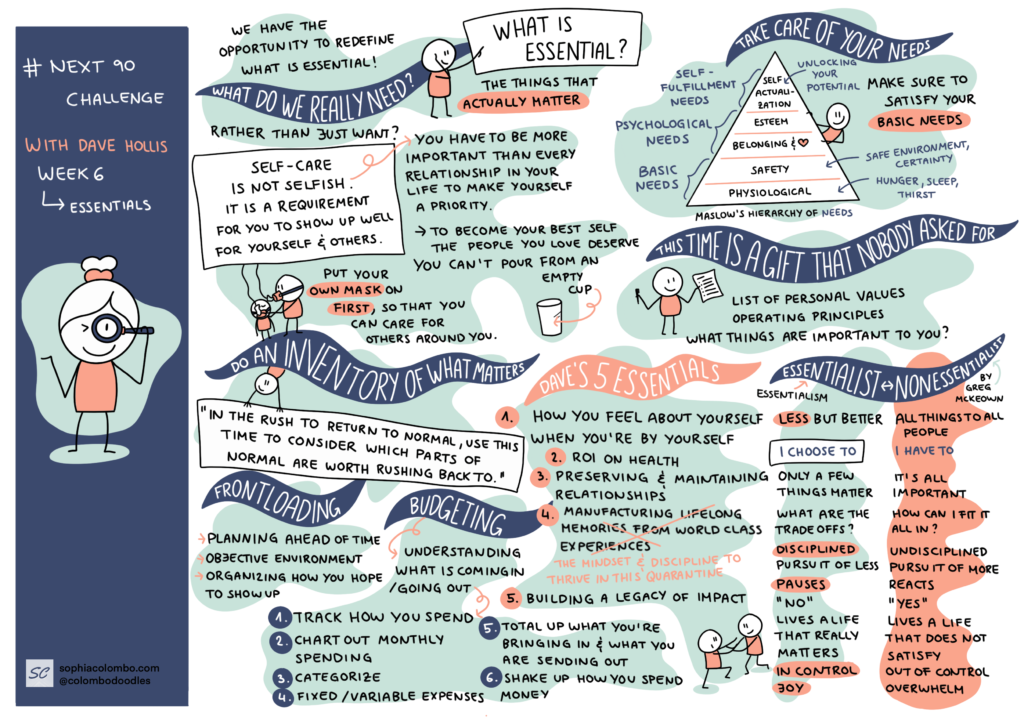 # NEXT 90
CHALLENGE
WITH DAVE HOLLIS
WEEK 6
ESSENTIALS
SC
sophiacolombo.com
@colombodoodles
WE HAVE THE
OPPORTUNITY TO REDEFINE
WHAT IS ESSENTIAL!
WHAT DO WE REALLY NEED?
RATHER THAN JUST WANT?
WHAT IS
ESSENTIAL?
THE THINGS THAT
ACTUALLY MATTER
SELF-CARE
IS NOT SELFISH.
IT IS A REQUIREMENT
FOR YOU TO SHOW UP WELL
FOR YOURSELF & OTHERS.
YOU HAVE TO BE MORE
IMPORTANT THAN EVERY
RELATIONSHIP IN YOUR
LIFE TO MAKE YOURSELF
A PRIORITY.
→ TO BECOME YOUR BEST SELF
THE PEOPLE YOU LOVE DESERVE
YOU CAN'T POUR FROM AN
EMPTY
CUP
PUT YOUR
OWN MASK ON
FIRST, SO THAT YOU
CAN CARE FOR
OTHERS AROUND YOU.
TAKE CARE OF YOUR NEEDS
SELF-
FULFILLMENT
NEEDS
PSYCHOLOGICAL
NEEDS
BASIC
NEEDS
SELF
ACTUALI-
ZATION
ESTEEM
BELONGING & ♥
SAFETY
PHYSIOLOGICAL
MASLOW'S HIERARCHY OF NEEDS
UNLOCKING
YOUR
POTENTIAL
MAKE SURE TO
SATISFY YOUR
BASIC NEEDS
SAFE ENVIRONMENT,
CERTAINTY
HUNGER, SLEEP,
THIRST
THIS TIME IS A GIFT THAT NOBODY ASKED FOR
LIST OF PERSONAL VALUES
OPERATING PRINCIPLES
WHAT THINGS ARE IMPORTANT TO YOU?
DO AN INVENTORY OF WHAT MATTERS
"IN THE RUSH TO RETURN TO NORMAL, USE THIS
TIME TO CONSIDER WHICH PARTS OF
NORMAL ARE WORTH RUSHING BACK TO."
FRONTLOADING
→ PLANNING AHEAD OF TIME
→ OBJECTIVE ENVIRONMENT
→ ORGANIZING HOW YOU HOPE
TO SHOW UP
BUDGETING
UNDERSTANDING
WHAT IS COMING IN
/GOING OUT
1. TRACK HOW YOU SPEND
2. CHART OUT MONTHLY
SPENDING
3. CATEGORIZE
4. FIXED/VARIABLE EXPENSES
5. TOTAL UP WHAT YOU'RE
BRINGING IN & WHAT YOU
ARE SENDING OUT
6. SHAKE UP HOW YOU SPEND
MONEY
DAVE'S 5 ESSENTIALS
1. HOW YOU FEEL ABOUT YOURSELF
WHEN YOU'RE BY YOURSELF
2. ROI ON HEALTH
3. PRESERVING & MAINTAINING
RELATIONSHIPS
4. MANUFACTURING LIFELONG
MEMORIES FROM WORLD CLASS
EXPERIENCES
THE MINDSET & DISCIPLINE TO
THRIVE IN THIS QUARANTINE
5. BUILDING A LEGACY OF IMPACT
ESSENTIALIST ↔ NONESSENTIALIST
ESSENTIALISM
BY
GREG
MCKEOWN
LESS BUT BETTER
I CHOOSE TO
ONLY A FEW
THINGS MATTER
WHAT ARE THE
TRADE OFFS?
DISCIPLINED
PURSUIT OF LESS
PAUSES
"NO"
LIVES A LIFE
THAT REALLY
MATTERS
IN CONTROL
JOY
ALL THINGS TO ALL
PEOPLE
I HAVE TO
IT'S ALL
IMPORTANT
HOW CAN I FIT IT
ALL IN?
UNDISCIPLINED
PURSUIT OF MORE
REACTS
"YES"
LIVES A LIFE
THAT DOES NOT
SATISFY
OUT OF CONTROL
OVERWHELM